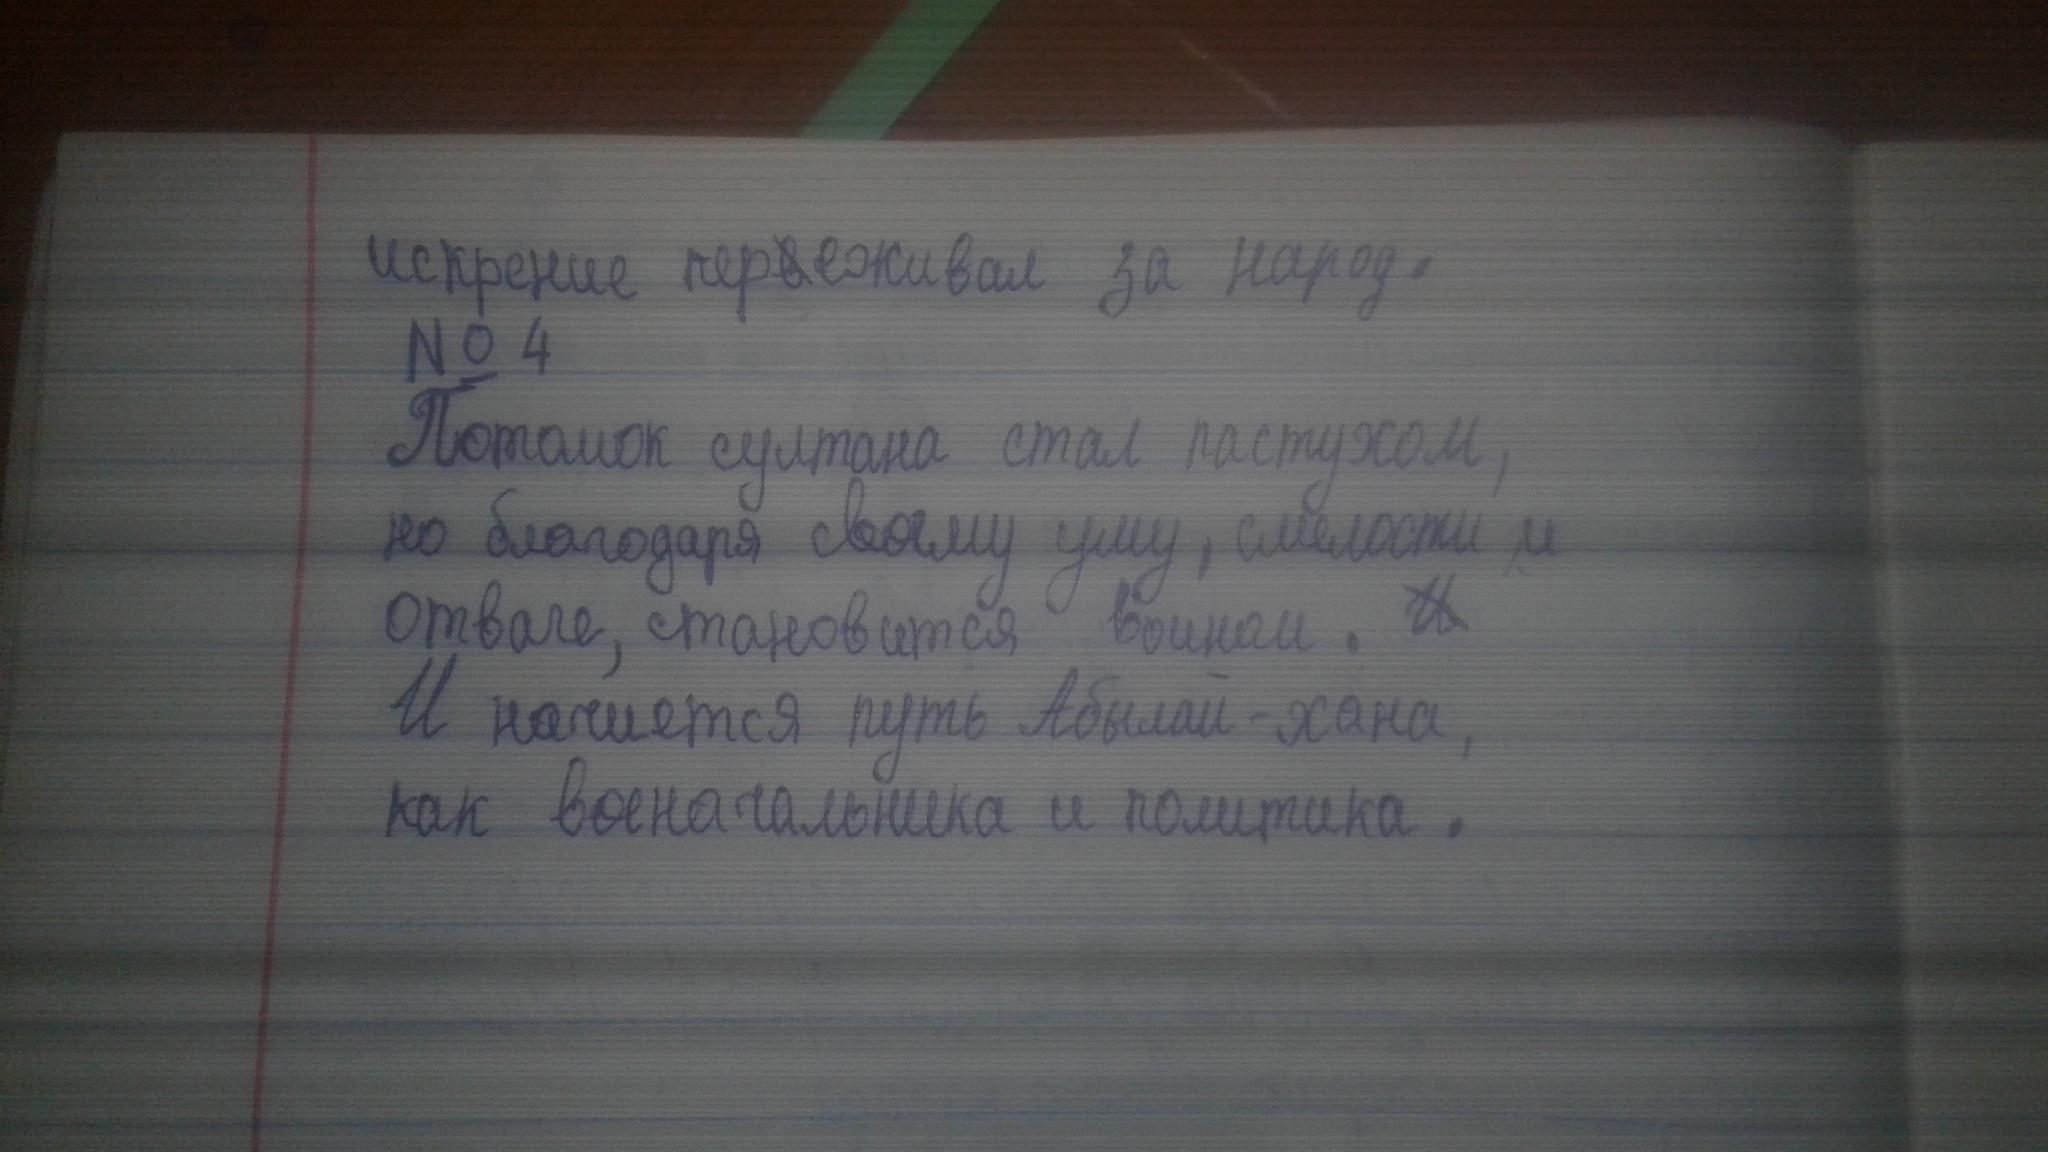 искрение переживал за народ.
№ 4
Потомок султана стал пастухом,
но благодаря своему уму, смелости и
отваге, становится воином.
И начнется путь Абылай-хана,
как военачальника и политика.